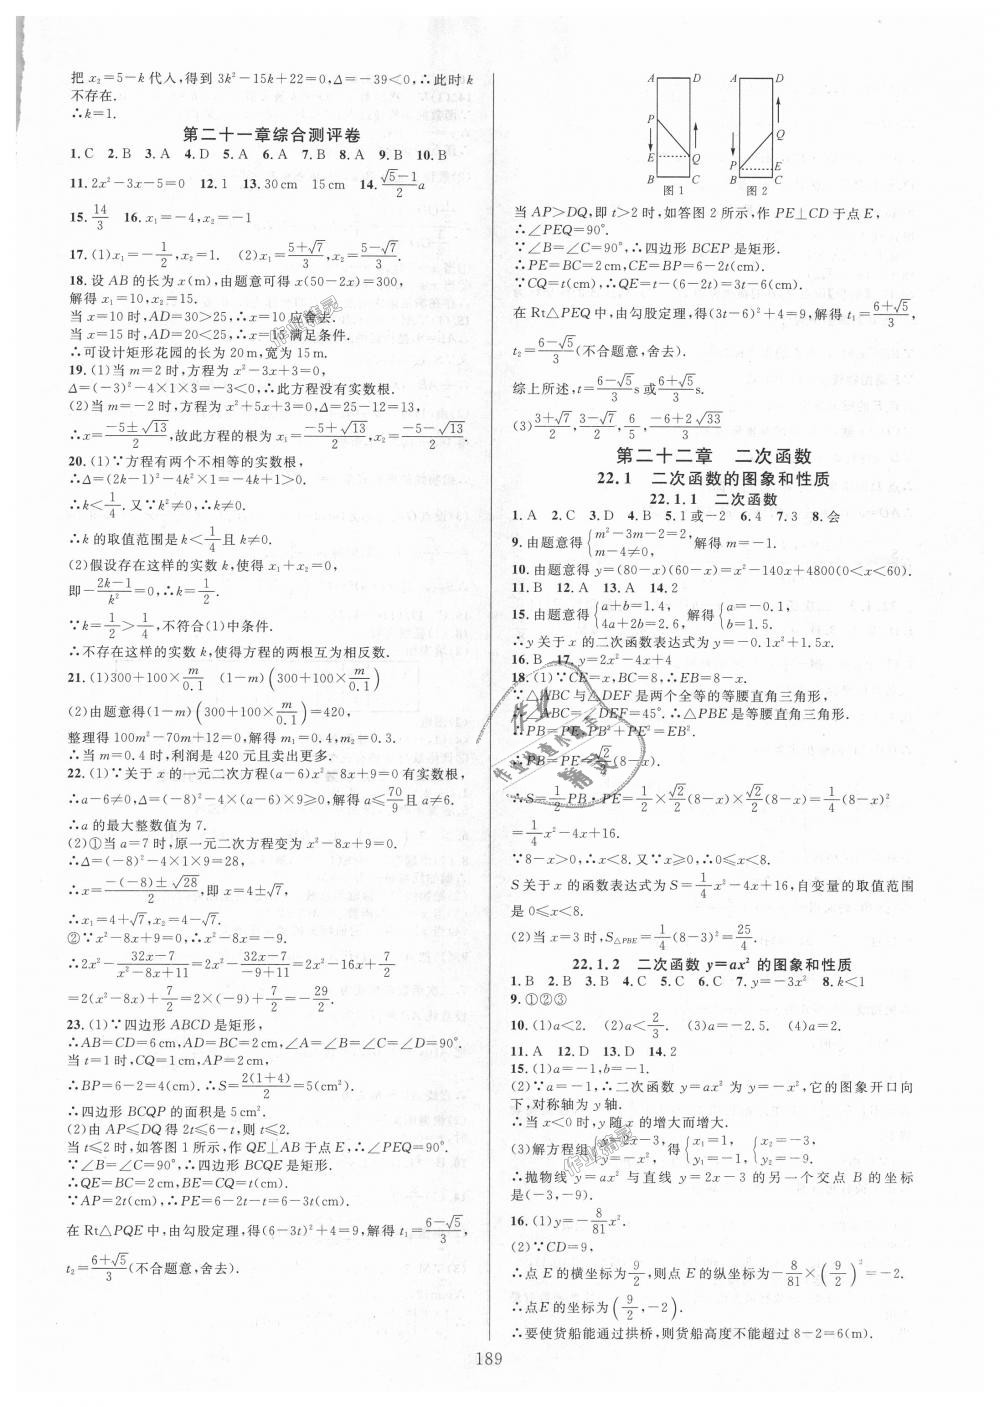 把 x₂=5-k 代入，得到 3k²-15k+22=0，Δ=-39<0，∴此时 k
不存在.
∴k=1.
第二十一章综合测评卷
1.C 2.B 3.A 4.D 5.A 6.A 7.B 8.A 9.B 10.B
11.2x²-3x-5=0 12.1 13.30 cm 15 cm 14.(√5-1)/2 a
15.14/3 16.x₁=-4,x₂=-1
17.(1)x₁=-1/2,x₂=1. (2)x₁=(5+√7)/3,x₂=(5-√7)/3.
18.设 AB 的长为 x(m)，由题意可得 x(50-2x)=300，
解得 x₁=10,x₂=15.
当 x=10 时，AD=30>25，∴x=10 应舍去.
当 x=15 时，AD=20<25，∴x=15 满足条件.
∴可设计矩形花园的长为 20 m，宽为 15 m.
19.(1)当 m=2 时，方程为 x²-3x+3=0，
Δ=(-3)²-4×1×3=-3<0，∴此方程没有实数根.
(2)当 m=-2 时，方程为 x²+5x+3=0，Δ=25-12=13，
∴x=(-5±√13)/2，故此方程的根为 x₁=(-5+√13)/2,x₂=(-5-√13)/2.
20.(1)∵方程有两个不相等的实数根，
∴Δ=(2k-1)²-4k²×1=-4k+1>0.
∴k<1/4. 又∵k²≠0，∴k≠0.
∴k 的取值范围是 k<1/4 且 k≠0.
(2)假设存在这样的实数 k，使得 x₁+x₂=0，
即-(2k-1)/k²=0，∴k=1/2.
∵k=1/2>1/4，不符合(1)中条件.
∴不存在这样的实数 k，使得方程的两根互为相反数.
21.(1)300+100×m/0.1 (1-m)(300+100×m/0.1)
(2)由题意得(1-m)(300+100×m/0.1)=420，
整理得 100m²-70m+12=0，解得 m₁=0.4,m₂=0.3.
∴当 m=0.4 时，利润是 420 元且卖出更多.
22.(1)∵关于 x 的一元二次方程(a-6)x²-8x+9=0 有实数根，
∴a-6≠0，Δ=(-8)²-4×(a-6)×9≥0，解得 a≤70/9 且 a≠6.
∴a 的最大整数值为 7.
(2)①当 a=7 时，原一元二次方程变为 x²-8x+9=0.
∴Δ=(-8)²-4×1×9=28，
∴x=(-(-8)±√28)/2，即 x=4±√7，
∴x₁=4+√7,x₂=4-√7.
②∵x²-8x+9=0，∴x²-8x=-9.
∴2x²-(32x-7)/(x²-8x+11)=2x²-(32x-7)/(-9+11)=2x²-16x+7/2
=2(x²-8x)+7/2=2×(-9)+7/2=-29/2.
23.(1)∵四边形 ABCD 是矩形，
∴AB=CD=6 cm，AD=BC=2 cm，∠A=∠B=∠C=∠D=90°.
当 t=1 时，CQ=1 cm，AP=2 cm，
∴BP=6-2=4(cm). ∴S=2(1+4)/2=5(cm²).
∴四边形 BCQP 的面积是 5 cm².
(2)由 AP≤DQ 得 2t≤6-t，则 t≤2.
当 t≤2 时，如答图 1 所示，作 QE⊥AB 于点 E，∴∠PEQ=90°.
∵∠B=∠C=90°，∴四边形 BCQE 是矩形.
∴QE=BC=2 cm，BE=CQ=t(cm).
∵AP=2t(cm)，∴PE=6-2t-t=6-3t(cm).
在 Rt△PQE 中，由勾股定理，得(6-3t)²+4=9，解得 t₁=(6-√5)/3，
t₂=(6+√5)/3(不合题意，舍去).
A D A D
P
Q
E Q P E
B C B C
图 1 图 2
当 AP>DQ，即 t>2 时，如答图 2 所示，作 PE⊥CD 于点 E，
∴∠PEQ=90°.
∵∠B=∠C=90°，∴四边形 BCEP 是矩形.
∴PE=BC=2 cm，CE=BP=6-2t(cm).
∵CQ=t(cm)，∴QE=t-(6-2t)=3t-6(cm).
在 Rt△PEQ 中，由勾股定理，得(3t-6)²+4=9，解得 t₁=(6+√5)/3，
t₂=(6-√5)/3(不合题意，舍去).
综上所述，t=(6-√5)/3 s 或(6+√5)/3 s.
(3)(3+√7)/2，(3-√7)/2，6/5，(-6+2√33)/3
第二十二章 二次函数
22.1 二次函数的图象和性质
22.1.1 二次函数
1.A 2.C 3.D 4.B 5.1 或-2 6.4 7.3 8.会
9.由题意得{m²-3m-2=2, m-4≠0, 解得 m=-1.
10.由题意得 y=(80-x)(60-x)=x²-140x+4800(0<x<60).
11.B 12.A 13.A 14.2
15.由题意得{a+b=1.4, 4a+2b=2.6, 解得{a=-0.1, b=1.5.
∴y 关于 x 的二次函数表达式为 y=-0.1x²+1.5x.
16.B 17.y=2x²-4x+4
18.(1)∵CE=x，BC=8，∴EB=8-x.
∵△ABC 与△DEF 是两个全等的等腰直角三角形，
∴∠ABC=∠DEF=45°. ∴△PBE 是等腰直角三角形.
∴PB=PE，PB²+PE²=EB².
∴PB=PE=√2/2(8-x).
∴S=1/2 PB·PE=1/2×√2/2(8-x)×√2/2(8-x)=1/4(8-x)²
=1/4x²-4x+16.
∵8-x>0，∴x<8. 又∵x≥0，∴0≤x<8.
S 关于 x 的函数表达式为 S=1/4x²-4x+16，自变量的取值范围
是 0≤x<8.
(2)当 x=3 时，S△PBE=1/4(8-3)²=25/4.
22.1.2 二次函数 y=ax² 的图象和性质
1.B 2.B 3.C 4.C 5.C 6.C 7.y=-3x² 8.k<1
9.①②③
10.(1)a<2. (2)a<2/3. (3)a=-2.5. (4)a=2.
11.A 12.D 13.D 14.2
15.(1)a=-1,b=-1.
(2)∵a=-1，∴二次函数 y=ax² 为 y=-x²，它的图象开口向
下，对称轴为 y 轴.
∴当 x<0 时，y 随 x 的增大而增大.
(3)解方程组{y=2x-3, y=-x², 得{x₁=1, y₁=-1, {x₂=-3, y₂=-9.
∴抛物线 y=ax² 与直线 y=2x-3 的另一个交点 B 的坐标
是(-3,-9).
16.(1)y=-8/81x².
(2)∵CD=9，
∴点 E 的横坐标为9/2，则点 E 的纵坐标为-8/81×(9/2)²=-2.
∴点 E 的坐标为(9/2,-2).
∴要使货船能通过拱桥，则货船高度不能超过 8-2=6(m).
189